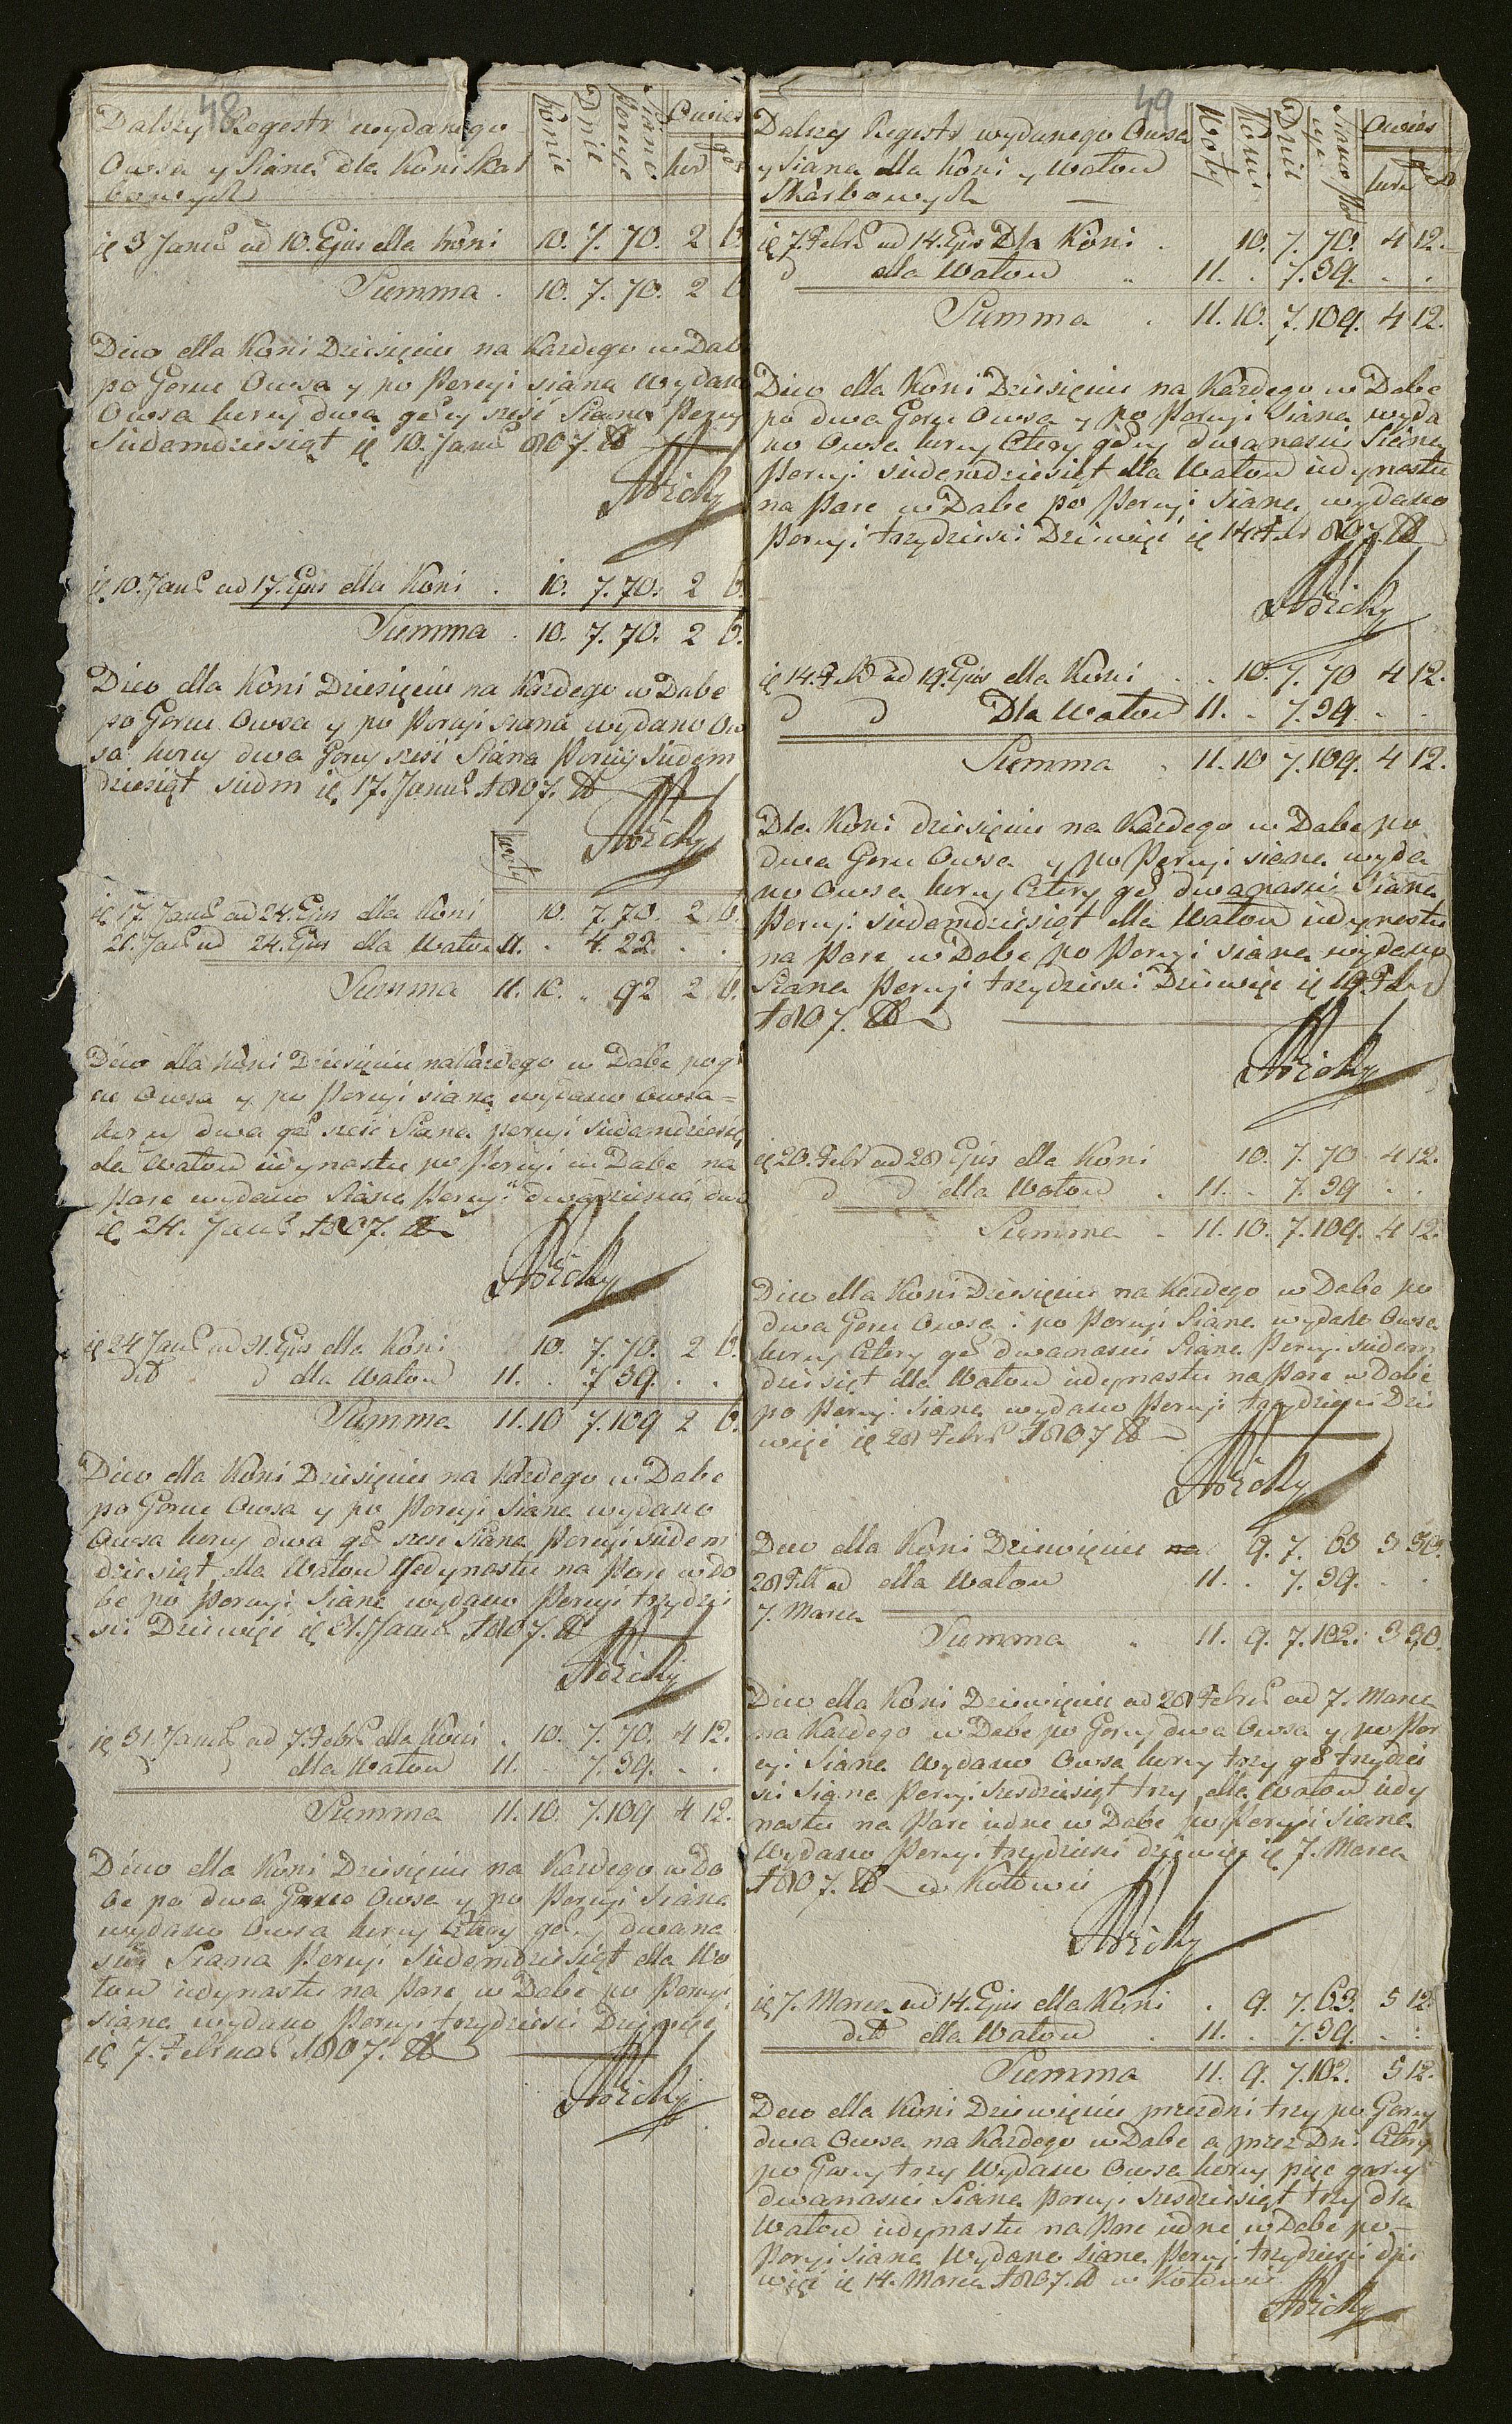 48
Dalszy Regestr wydanego
Owsa y Siana dla Koni Skar
bowych
Konie
Dnie
Siano Porcye
Owies
kor
gar
ię 3 Januş ad 10. Ejus dla Koni 10. 7. 70. 2 6.
Summa . 10. 7. 70. 2 6.
Dico dla Koni Dziesięciu na Każdego w Dobe
po Gorcu Owsa y po Porcyi siana Wydano
Owsa korcy dwa gcy sześć Siana Porcy
Siedemdziesiąt ię 10. Janu 807.
ię 10. Janu ad 17. Ejus dla Koni . 10. 7. 70. 2 6.
Summa . 10. 7. 70. 2 6.
Dico dla Koni Dziesięciu na Każdego w Dobe
po Gorcu Owsa y po Porcyi siana wydano Ow
sa korcy dwa Gorcy sześć Siana Porcyi Siedem
dziesiąt siedm ię 17. Janu 1807.
Woły
ię 17. Janu ad 24. Ejus dla Koni 10. 7. 70. 2 6.
21. Janu ad 24. Ejus dla Wołow 11. . 4. 22. . .
Summa 11. 10. „ 92 2 6.
Dico dla Koni Dziesięciu na każdego w Dobe po g
cu Owsa y po Porcyi siana wydano Owsa =
korcy dwa gc sześć Siana porcyi siedemdziesią
dla Wołow iedynastu po Porcyi w Dobe na
Pare wydano Siana Porcyi dwadzieścia dwa
ię 24. Janu 1807.
ię 24 Janu ad 31. Ejus dla Koni 10. 7. 70. 2 6.
dtt d dla Wołow 11. . 7 39. . .
Summa 11. 10 7. 109 2 6.
Dico dla Koni Dziesięciu na Każdego w Dobe
po Gorcu Owsa y po Porcyi Siana wydano
Owsa korcy dwa gc sześć Siana Porcyi siedem
dziesiąt, dla Wołow Jedynastu na Pare w Do
be po Porcyi Siana wydano Porcyi trzydzie
ści Dziewięć ię 31. Janu 1807.
ię 31. Janu ad 7. Febr dla Koni . 10. 7. 70. 4 12.
d d dla Wołow 11. . 7. 39. . .
Summa 11. 10. 7. 109 4 12.
Dico dla Koni Dziesięciu na Każdego w Do
be po dwa Garce Owsa y po Porcyi Siana
wydano Owsa korcy Cztery gcy dwana
ście Siana Porcyi Siedemdziesiąt dla Wo
łow iedynastu na Pare w Dobe po Porcyi
siana wydano Porcyi trzydzieści Dziewięć
ię 7. Februa 1807.
49
Dalszy Regestr wydanego Owsa
y Siana dla Koni y Wołow
Skarbowych —
Woły
Konie
Dnie
Owies
ię 7. Febr ad 14. Ejus Dla Koni . 10. 7. 70. 4 12.
d dla Wołow „ 11. . 7. 39. . .
Summa . 11. 10. 7. 109. 4 12.
Dico dla Koni Dziesięciu na Każdego w Dobe
po dwa Gorce Owsa y po Porcyi Siana wyda
no Owsa korcy Cztery gcy dwanaście Siana
Porcyi siedemdziesiąt dla Wołow iedynastu
na Pare w Dobe po Porcyi siana wydano
Porcyi trzydzieści Dziewięć ię 14 Feb 807.
ię 14. Feb ad 19. Ejus dla Koni . . 10. 7. 70 4 12.
d d Dla Wołow 11. . 7. 39 . .
Summa . 11. 10 7. 109. 4 12.
Dla Koni dziesięciu na Każdego w Dobe po
dwa Gorce Owsa y po Porcyi siana wyda
no Owsa korcy Cztery gc dwanaście Siana
Porcyi siedemdziesiąt dla Wołow iedynastu
na Pare w Dobe po Porcyi siana wydano
Siana Porcyi trzydzieści Dziewięć ię 19. Feb
1807.
ię 20. Febr ad 28 Ejus dla Koni 10. 7. 70 4 12.
d d dla Wołow . 11. . 7. 39 . .
Summa . 11. 10. 7. 109. 4 12.
Dico dla Koni Dziesięciu na Każdego w Dobe po
dwa Gorce Owsa i po Porcyi Siana wydano Owsa
korcy Cztery gc dwanaście Siana Porcyi siedem
dziesiąt dla Wołow iedynastu na Pare w Dobe
po Porcyi Siana wydano Porcyi trzydzieści Dzie
więć ię 28 Febr 1807
Dico dla Koni Dziewięciu na 9. 7. 63 3 30.
28 Feb ad dla Wołow 11. . 7. 39. . .
7. Marca
Summa „ 11. 9. 7. 102. 3 30.
Dico dla Koni Dziewięciu ad 28 Febr ad 7. Marca
na Każdego w Dobe po Gorcy dwa Owsa y po Por
cyi Siana Wydano Owsa korcy trzy gc trzydzie
ści Siana Porcyi sześdziesiąt trzy, dla Wołow iedy
nastu na Pare iedne w Dobe po Porcyi siana
Wydano Porcyi trzydzieści dziewięć ię 7. Marca
1807. w Kotowie
ię 7. Marca ad 14. Ejus dla Koni . 9. 7. 63. 5 12.
dtt dla Wołow . 11. . 7. 39. . .
Summa 11. 9. 7. 102. 5 12.
Dico dla Koni Dziewięciu przez dni trzy po Gorcy
dwa Owsa na Każdego w Dobe a przez Dni Cztery
po Gorcy trzy Wydano Owsa korcy pięć garcy
dwanaście Siana Porcyi sześdziesiąt trzy dla
Wołow iedynastu na Pare iedne w Dobe po
Porcyi siana Wydano siana Porcyi trzydzieści dzie
więć ię 14. Marca 1807. w Kotowie